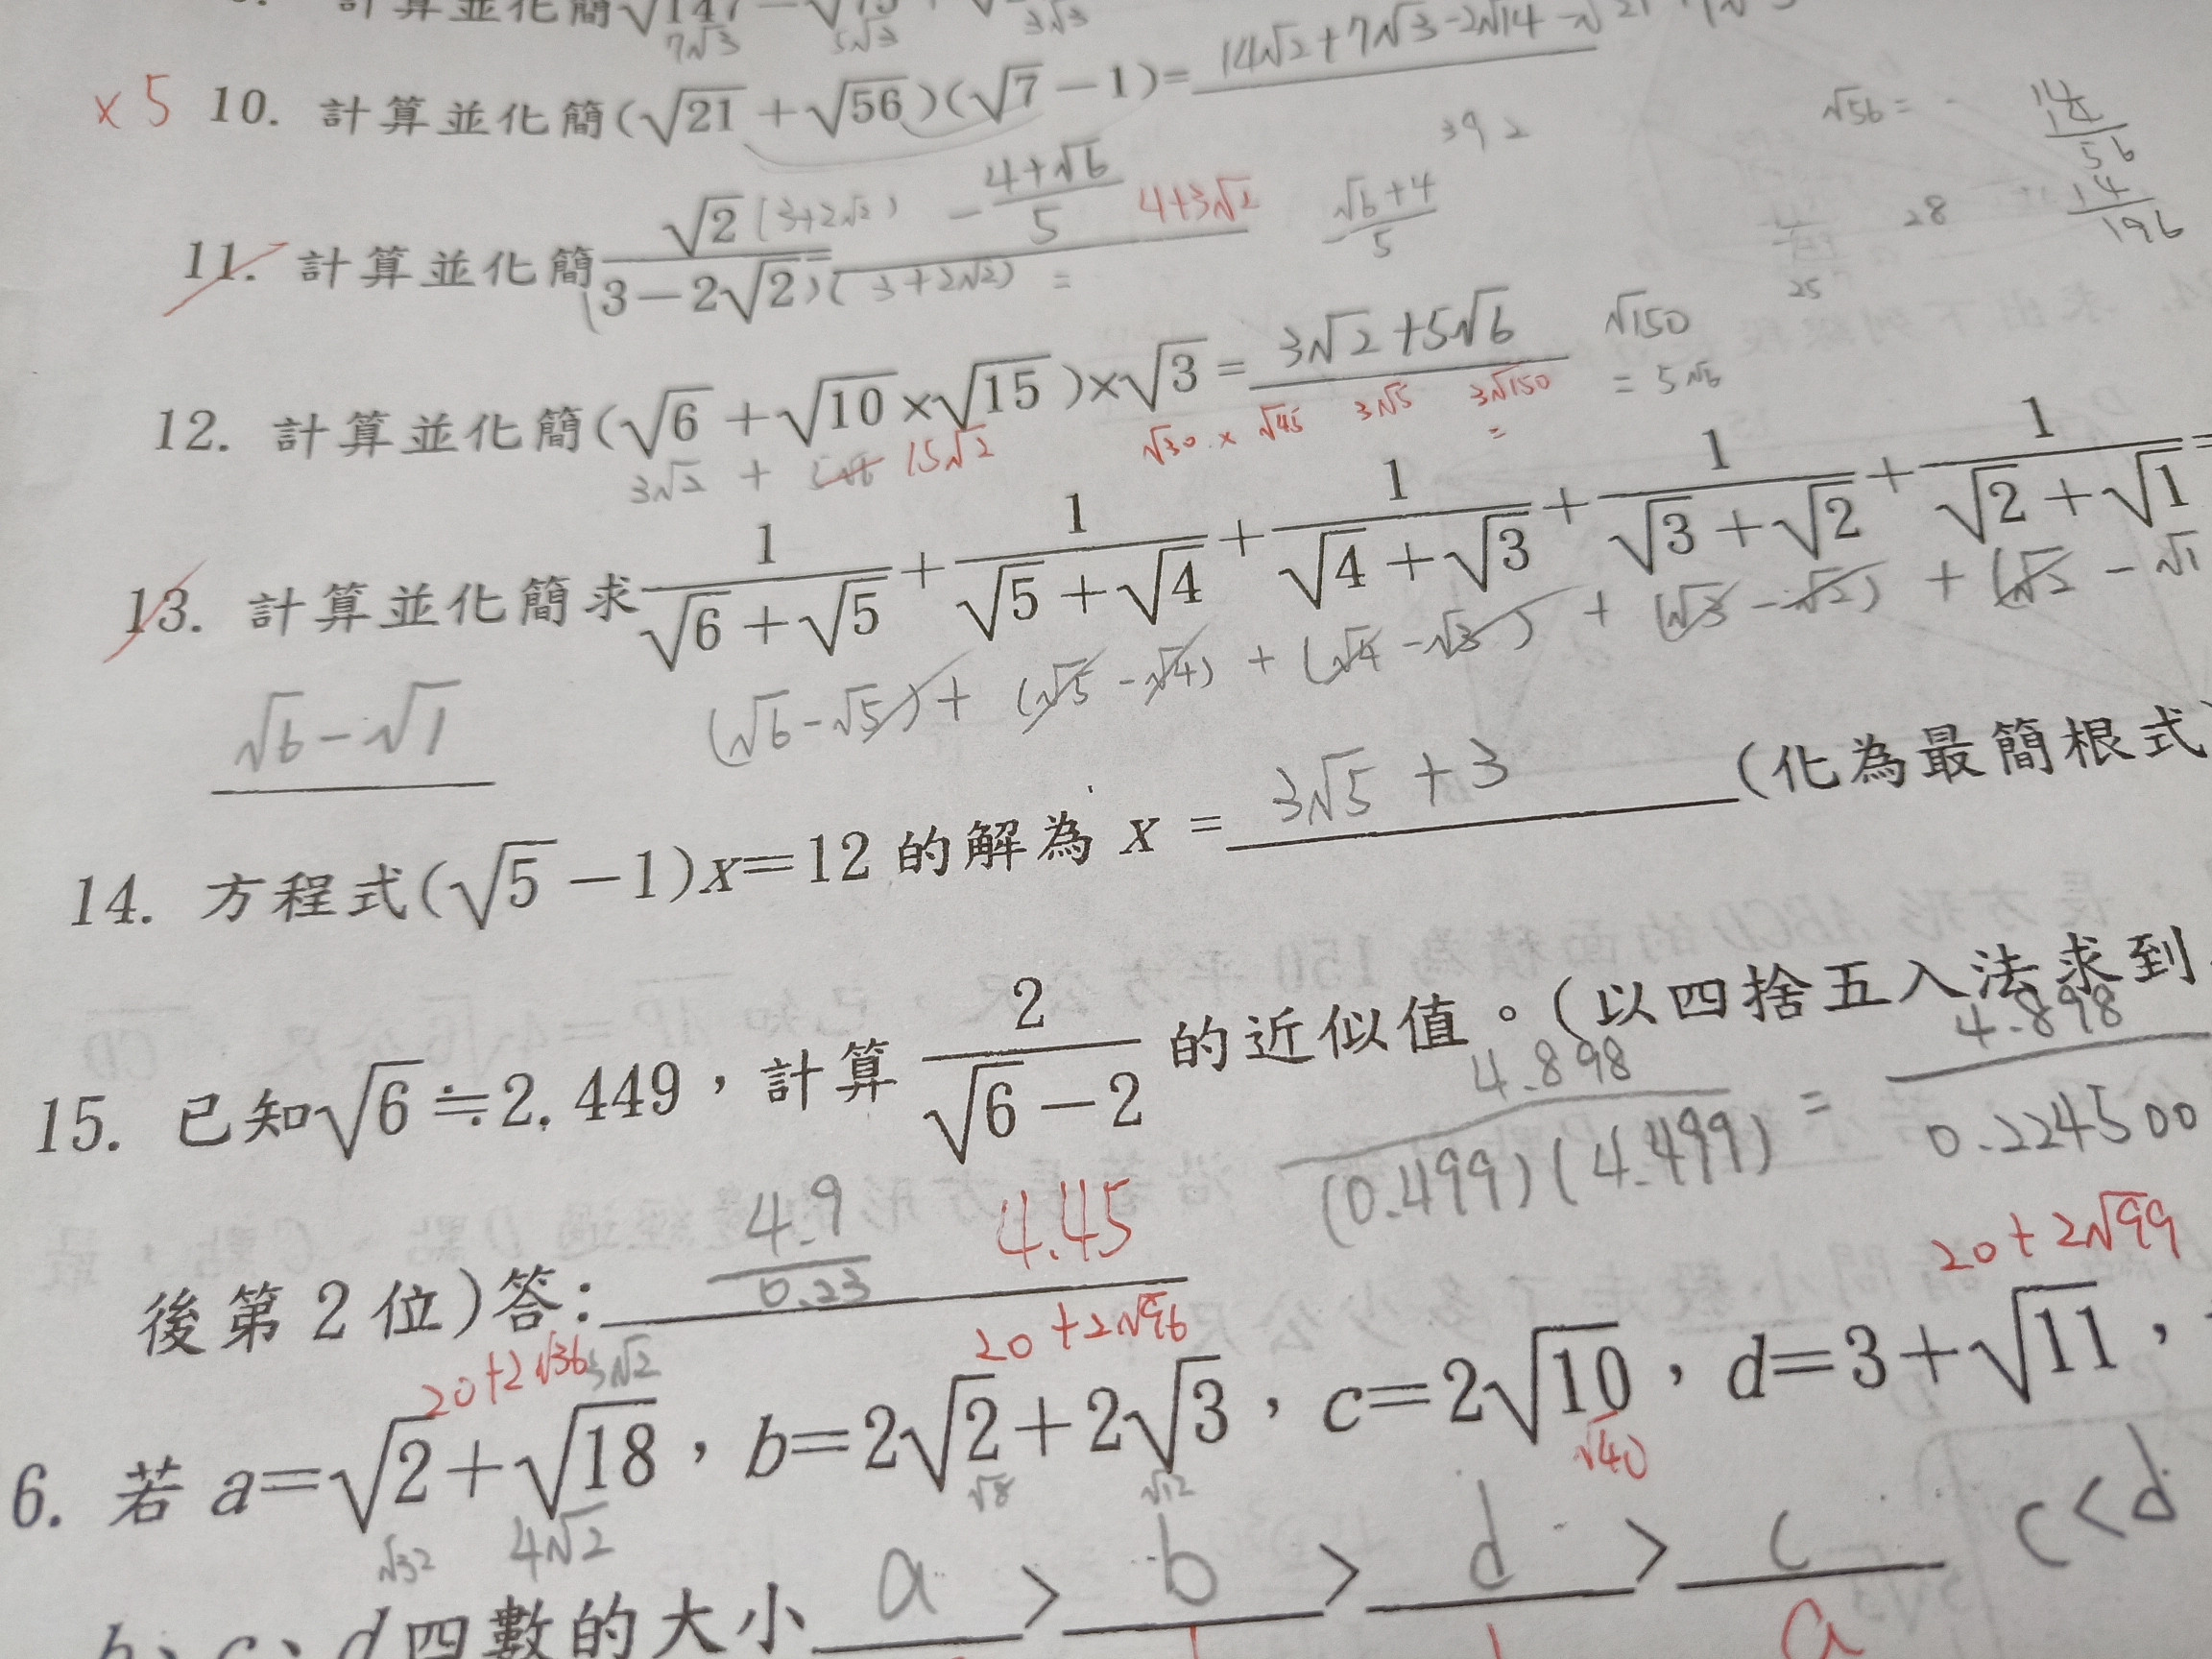 計算並化簡√147
7√3 5√3 3√3
×5 10. 計算並化簡(√21+√56)(√7−1)= 14√2+7√3−2√14−√21
392 √56=
14
56
28 14
196
25
11. 計算並化簡 √2/(3−2√2) (3+2√2) (3+2√2) = −(4+√6)/5 4+3√2 (√6+4)/5
12. 計算並化簡(√6+√10×√15)×√3= 3√2+5√6 √150
=5√6
3√2 + 15√2 √30 × √45 3√5 3√150
=
13. 計算並化簡求 1/(√6+√5) + 1/(√5+√4) + 1/(√4+√3) + 1/(√3+√2) + 1/(√2+√1) =
(√6−√5)+(√5−√4)+(√4−√3)+(√3−√2)+(√2−√1
√6−√1
14. 方程式(√5−1)x=12 的解為 x = 3√5+3 (化為最簡根式
15. 已知√6≒2.449,計算 2/(√6−2) 的近似值。(以四捨五入法求到
4.898/(0.499)(4.499) = 4.898/0.224500
後第 2 位)答: 4.9/0.23 4.45
20+2√36 3√2 20+2√96 20+2√99
6. 若 a=√2+√18,b=2√2+2√3,c=2√10,d=3+√11,
√32 4√2 √8 √12 √40
b、c、d 四數的大小 a > b > d > c c<d
a